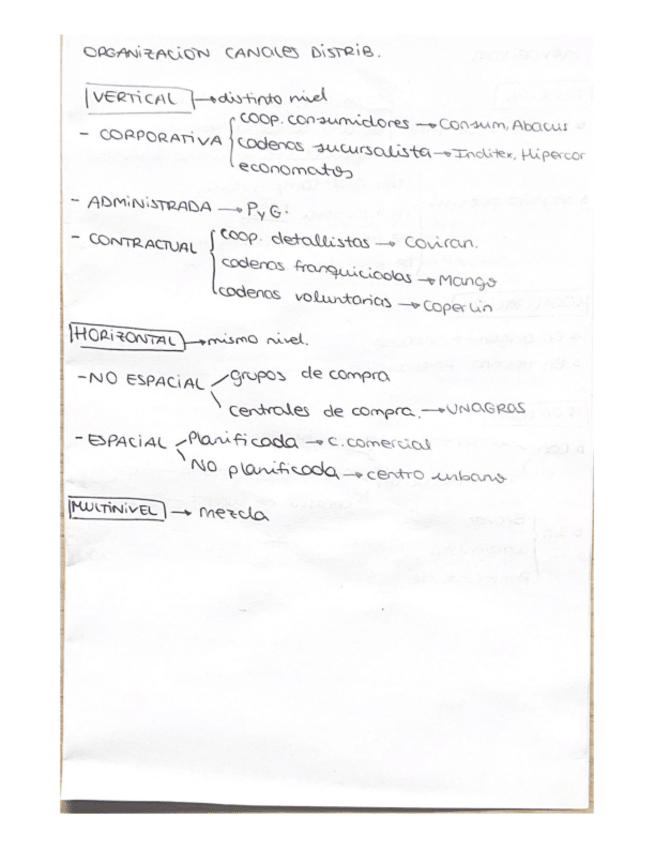 ORGANIZACION CANALES DISTRIB.
VERTICAL → distinto nivel
- CORPORATIVA { coop. consumidores → Consum, Abacus
cadenas sucursalista → Inditex, Hipercor
economatos
- ADMINISTRADA → P y G.
- CONTRACTUAL { coop. detallistas → Coviran.
cadenas franquiciadas → Mango
cadenas voluntarias → Coperlin
HORIZONTAL → mismo nivel.
- NO ESPACIAL grupos de compra
centrales de compra. → UNAGRAS
- ESPACIAL Planificada → c. comercial
NO planificada → centro urbano
MULTINIVEL → mezcla